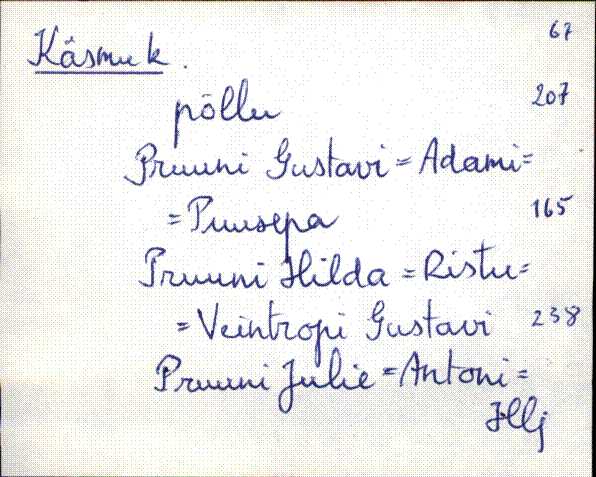 67
Käsmuk.
põllu 207
Pruuni Gustavi = Adami =
= Puusepa 165
Pruuni Hilda = Ristu =
= Veintropi Gustavi 238
Pruuni Julie = Antoni =